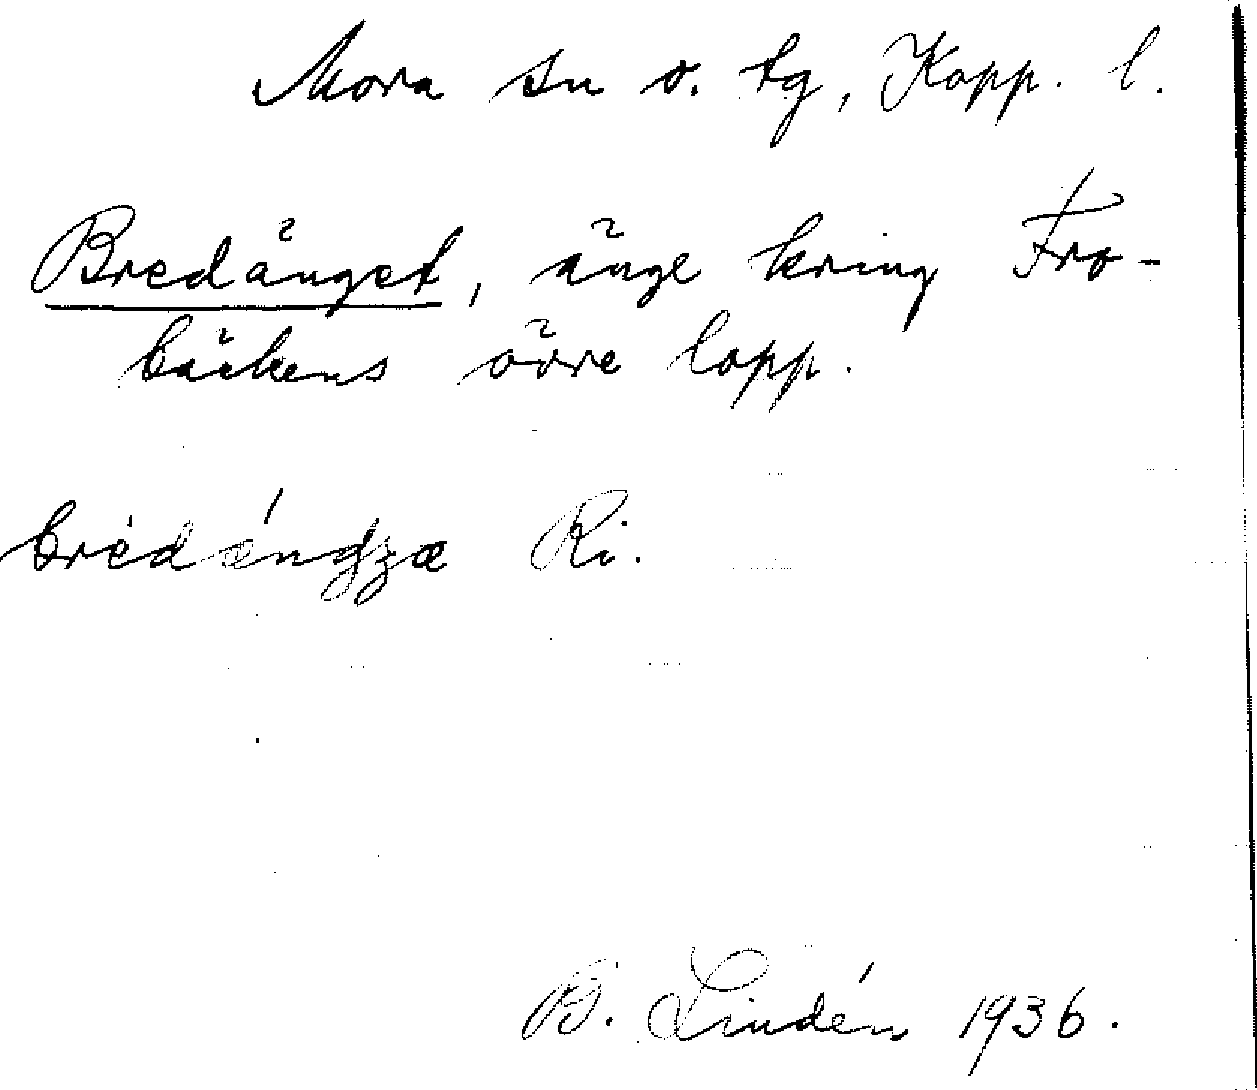 Mora sn o. tg, Kopp. l.
Bredänget, änge kring Fro-
bäckens övre lopp.
brèdǽndʒæ Ri.
B. Lindén 1936.